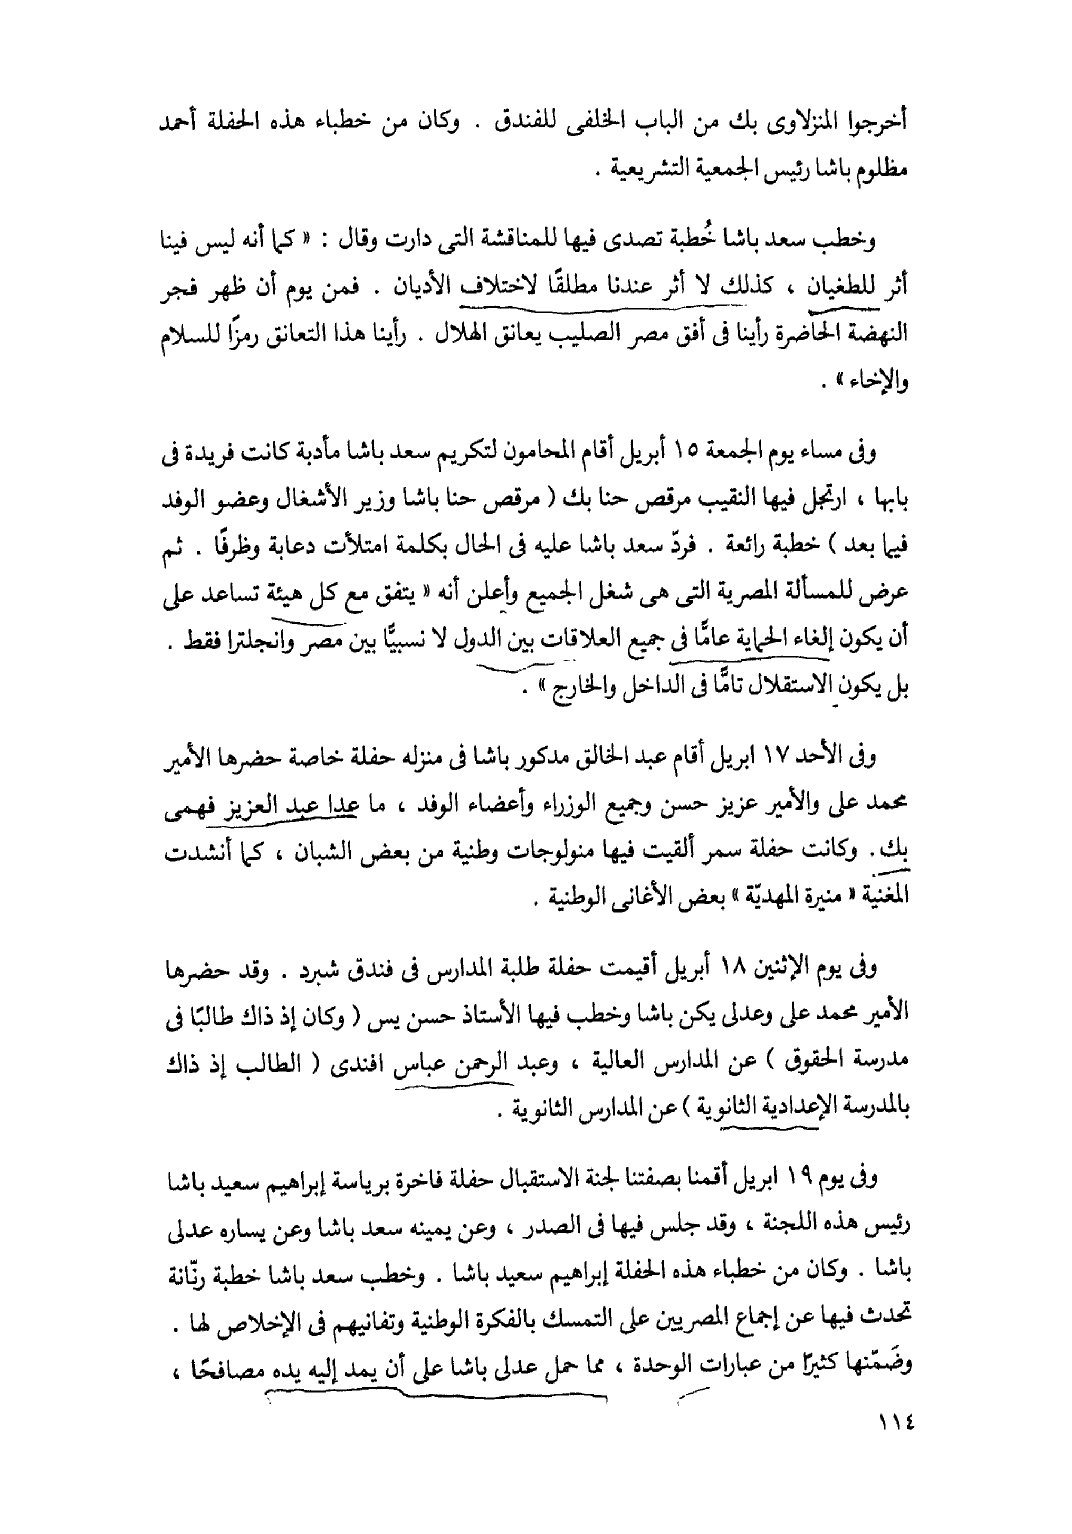 أخرجوا المنزلاوى بك من الباب الخلفى للفندق . وكان من خطباء هذه الحفلة أحمد
مظلوم باشا رئيس الجمعية التشريعية .
وخطب سعد باشا خُطبة تصدى فيها للمناقشة التى دارت وقال : « كما أنه ليس فينا
أثر للطغيان ، كذلك لا أثر عندنا مطلقًا لاختلاف الأديان . فمن يوم أن ظهر فجر
النهضة الحاضرة رأينا فى أفق مصر الصليب يعانق الهلال . رأينا هذا التعانق رمزًا للسلام
والإخاء » .
وفى مساء يوم الجمعة ١٥ أبريل أقام المحامون لتكريم سعد باشا مأدبة كانت فريدة فى
بابها ، ارتجل فيها النقيب مرقص حنا بك ( مرقص حنا باشا وزير الأشغال وعضو الوفد
فيما بعد ) خطبة رائعة . فردّ سعد باشا عليه فى الحال بكلمة امتلأت دعابة وظرفًا . ثم
عرض للمسألة المصرية التى هى شغل الجميع وأعلن أنه « يتفق مع كل هيئة تساعد على
أن يكون إلغاء الحماية عامًّا فى جميع العلاقات بين الدول لا نسبيًّا بين مصر وانجلترا فقط .
بل يكون الاستقلال تامًّا فى الداخل والخارج » .
وفى الأحد ١٧ ابريل أقام عبد الخالق مدكور باشا فى منزله حفلة خاصة حضرها الأمير
محمد على والأمير عزيز حسن وجميع الوزراء وأعضاء الوفد ، ما عدا عبد العزيز فهمى
بك . وكانت حفلة سمر ألقيت فيها منولوجات وطنية من بعض الشبان ، كما أنشدت
المغنية « منيرة المهديّة » بعض الأغانى الوطنية .
وفى يوم الإثنين ١٨ أبريل أقيمت حفلة طلبة المدارس فى فندق شبرد . وقد حضرها
الأمير محمد على وعدلى يكن باشا وخطب فيها الأستاذ حسن يس ( وكان إذ ذاك طالبًا فى
مدرسة الحقوق ) عن المدارس العالية ، وعبد الرحمن عباس افندى ( الطالب إذ ذاك
بالمدرسة الإعدادية الثانوية ) عن المدارس الثانوية .
وفى يوم ١٩ ابريل أقمنا بصفتنا لجنة الاستقبال حفلة فاخرة برياسة إبراهيم سعيد باشا
رئيس هذه اللجنة ، وقد جلس فيها فى الصدر ، وعن يمينه سعد باشا وعن يساره عدلى
باشا . وكان من خطباء هذه الحفلة إبراهيم سعيد باشا . وخطب سعد باشا خطبة رنّانة
تحدث فيها عن إجماع المصريين على التمسك بالفكرة الوطنية وتفانيهم فى الإخلاص لها .
وضَمّنها كثيرًا من عبارات الوحدة ، مما حمل عدلى باشا على أن يمد إليه يده مصافحًا ،
١١٤